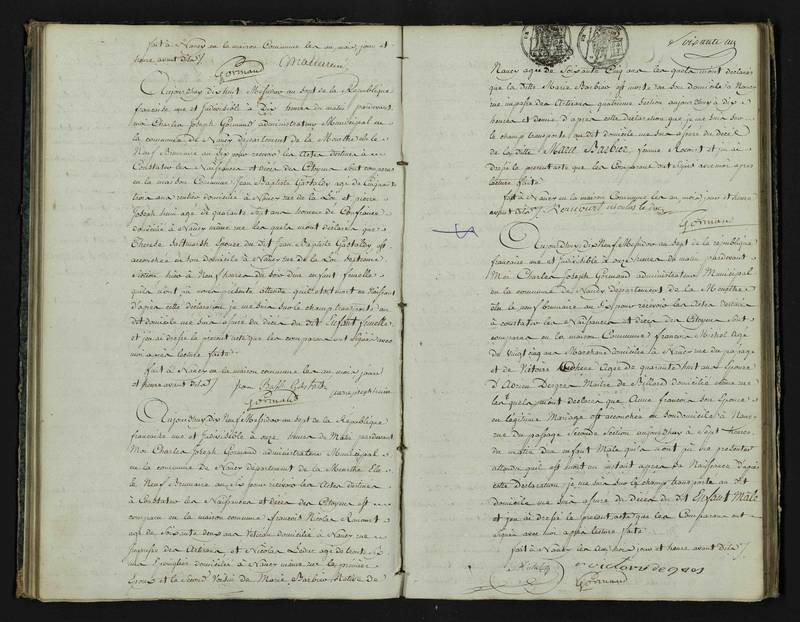 fait à Nancy en la maison Commune les an, mois, jour et
heure avant dits
Gormand
Aujourdhuy dix huit Messidor an sept de la République
française une et indivisible à Dix heures du matin pardevant
moi Charles Joseph Gormand administrateur Municipal en
la commune de Nancy département de la Meurthe élu le
Neuf Brumaire an Six pour recevoir les Actes destinés à
Constater les Naissances et décès des Citoyens sont comparus
en la maison Commune Jean Baptiste Gastaldy agé de Cinquante
trois ans domicilié à Nancy rue de la Loi et pierre
Joseph agé de quarante Sept ans homme de Confiance
domicilié à Nancy même rue les quels mont déclarés que
Therese Epouse du dit Jean Baptiste Gastaldy est
accouchée en son domicile à Nancy rue de la Loi Septieme
Section hier à Neuf heures du Soir d'un enfant femelle
quils nont pû nous présenter attendu quil est mort en Naissant
d'après cette déclaration je me suis sur le champ transporté au
dit domicile me suis assuré du décès du dit Enfant femelle
et j'en ai dressé le present acte que les comparans ont signés avec
moi après lecture faite
fait à Nancy en la maison commune les an, mois jour
et heure avant dits
Gormand
Aujourdhuy dix Neuf Messidor an sept de la République
francaise une et Indivisible à onze heures du Matin pardevant
Moi Charles Joseph Gormand administrateur Municipal
en la commune de Nancy département de la Meurthe Elu
le Neuf Brumaire an Six pour recevoir les Actes destinés
à Constater les Naissances et décès des Citoyens est
comparu en la maison commune françois Nicolas
agé de Soixante deux ans Vétéran domicilié à Nancy rue
des Artisans, et Nicolas Leduc agé de trente
ans domicilié à Nancy meme rue le premier
Epoux et le Second Voisin de Marie Barbier Native de
Soixante un
Nancy agée de Soixante Cinq ans les quels mont déclarés
que la ditte Marie Barbier est morte en Son domicile à Nancy
rue des Artisans quatrieme Section aujourdhuy à dix
heures et demie d'après cette déclaration je me suis sur
le champ transporté au dit domicile me suis assuré du décès
de la ditte Marie Barbier femme et j'en ai
dressé le present acte que les Comparans ont Signés avec moi après
lecture faite
fait à Nancy en la maison Commune les an, mois jour et heure
avant dits nicolas le duc
Gormand
Aujourdhuy dix Neuf Messidor an sept de la République
française une et indivisible à onze heures du matin pardevant
Moi Charles Joseph Gormand administrateur Municipal
en la commune de Nancy Département de la Meurthe
élu le neuf brumaire an Six pour recevoir les Actes destinés
à constater les Naissances et décès des Citoyens sont
comparus en la maison Commune françois Michel agé
de Vingt cinq ans Marchand domicilié à Nancy rue du passage
et de Victoire agée de quarante huit ans Epouse
d'Adrien Maitre de Billard domiciliée même rue
les quels mont déclarés que Anne francois Son Epouse
en légitime Mariage est accouchée en Son domicile à Nancy
rue du passage Seconde Section aujourdhuy à Sept heures
du matin d'un enfant Mâle qu'ils n'ont pû me presenter
attendu quil est mort un instant après sa Naissance d'après
cette Déclaration je me suis sur le champ transporté au dit
domicile me suis assuré du décès du dit Enfant Mâle
et j'en ai dressé le present acte que les Comparans ont
Signés avec moi après lecture faite
fait à Nancy les an, mois jour et heure avant dits
Gormand